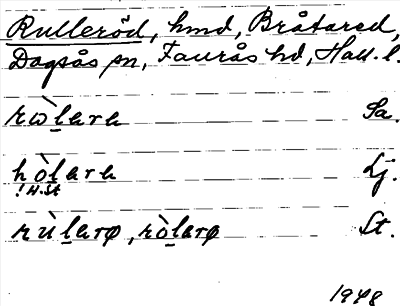 Rulleröd, hmd, Bråtared,
Dagsås sn, Faurås hd, Hall. l.
rẁlara Sa.
hòlara Lj.
! H. St
rùlarø, ròlarø St.
1948